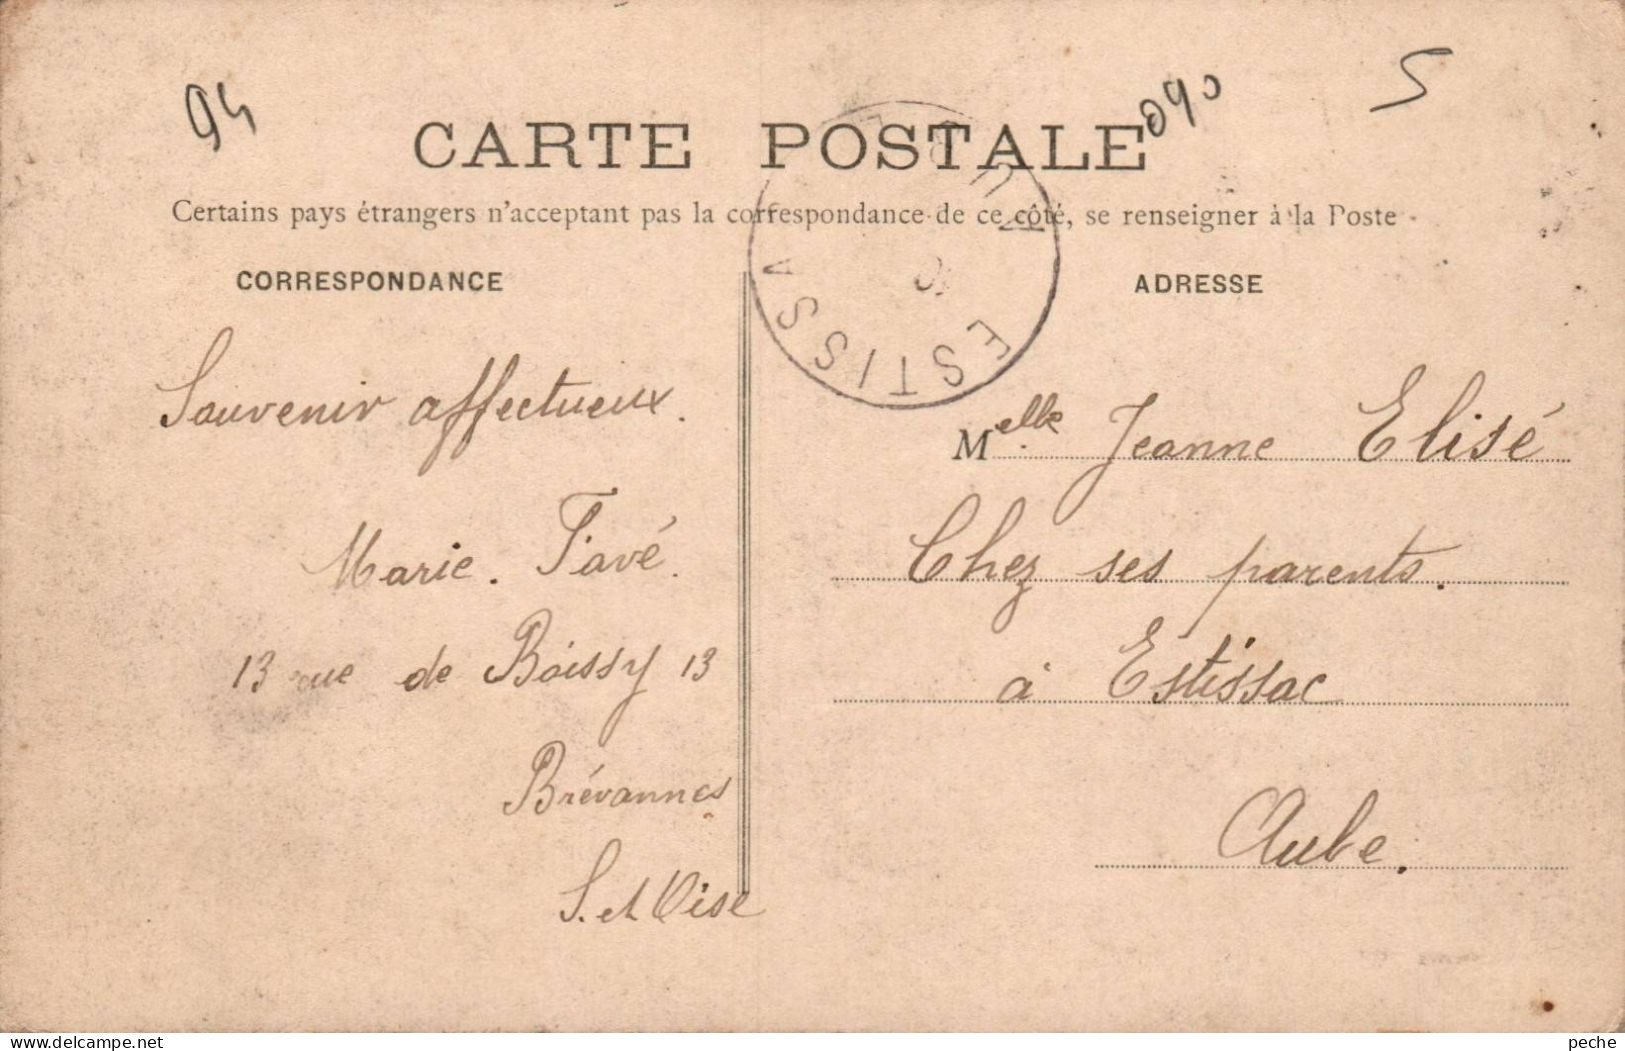 94
090
5
CARTE POSTALE
Certains pays étrangers n'acceptant pas la correspondance de ce côté, se renseigner à la Poste
CORRESPONDANCE
Souvenir affectueux.
Marie. Favé.
13 rue de Boissy 13
Brévannes
S. et Oise
ESTISSA
ADRESSE
Melle Jeanne Elisé
Chez ses parents.
à Estissac
Aube.
peche